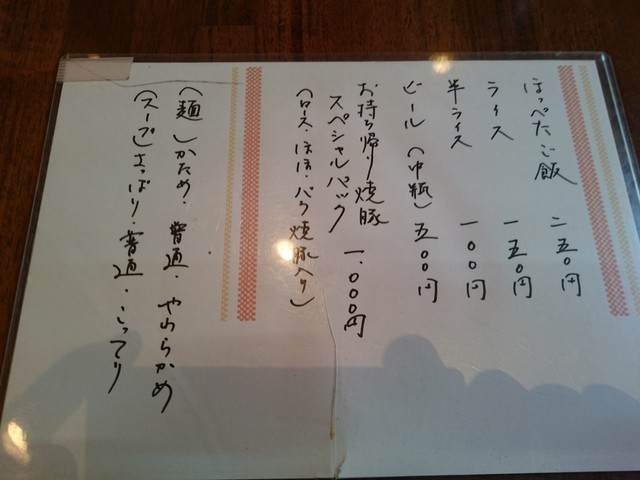 ほっぺたご飯 二五〇円
ライス 一五〇円
半ライス 一〇〇円
ビール（中瓶） 五〇〇円
お持ち帰り焼豚
スペシャルパック 一.〇〇〇円
（ロース・ほほ・バラ焼豚入り）
（麺）かため・普通・やわらかめ
（スープ）さっぱり・普通・こってり